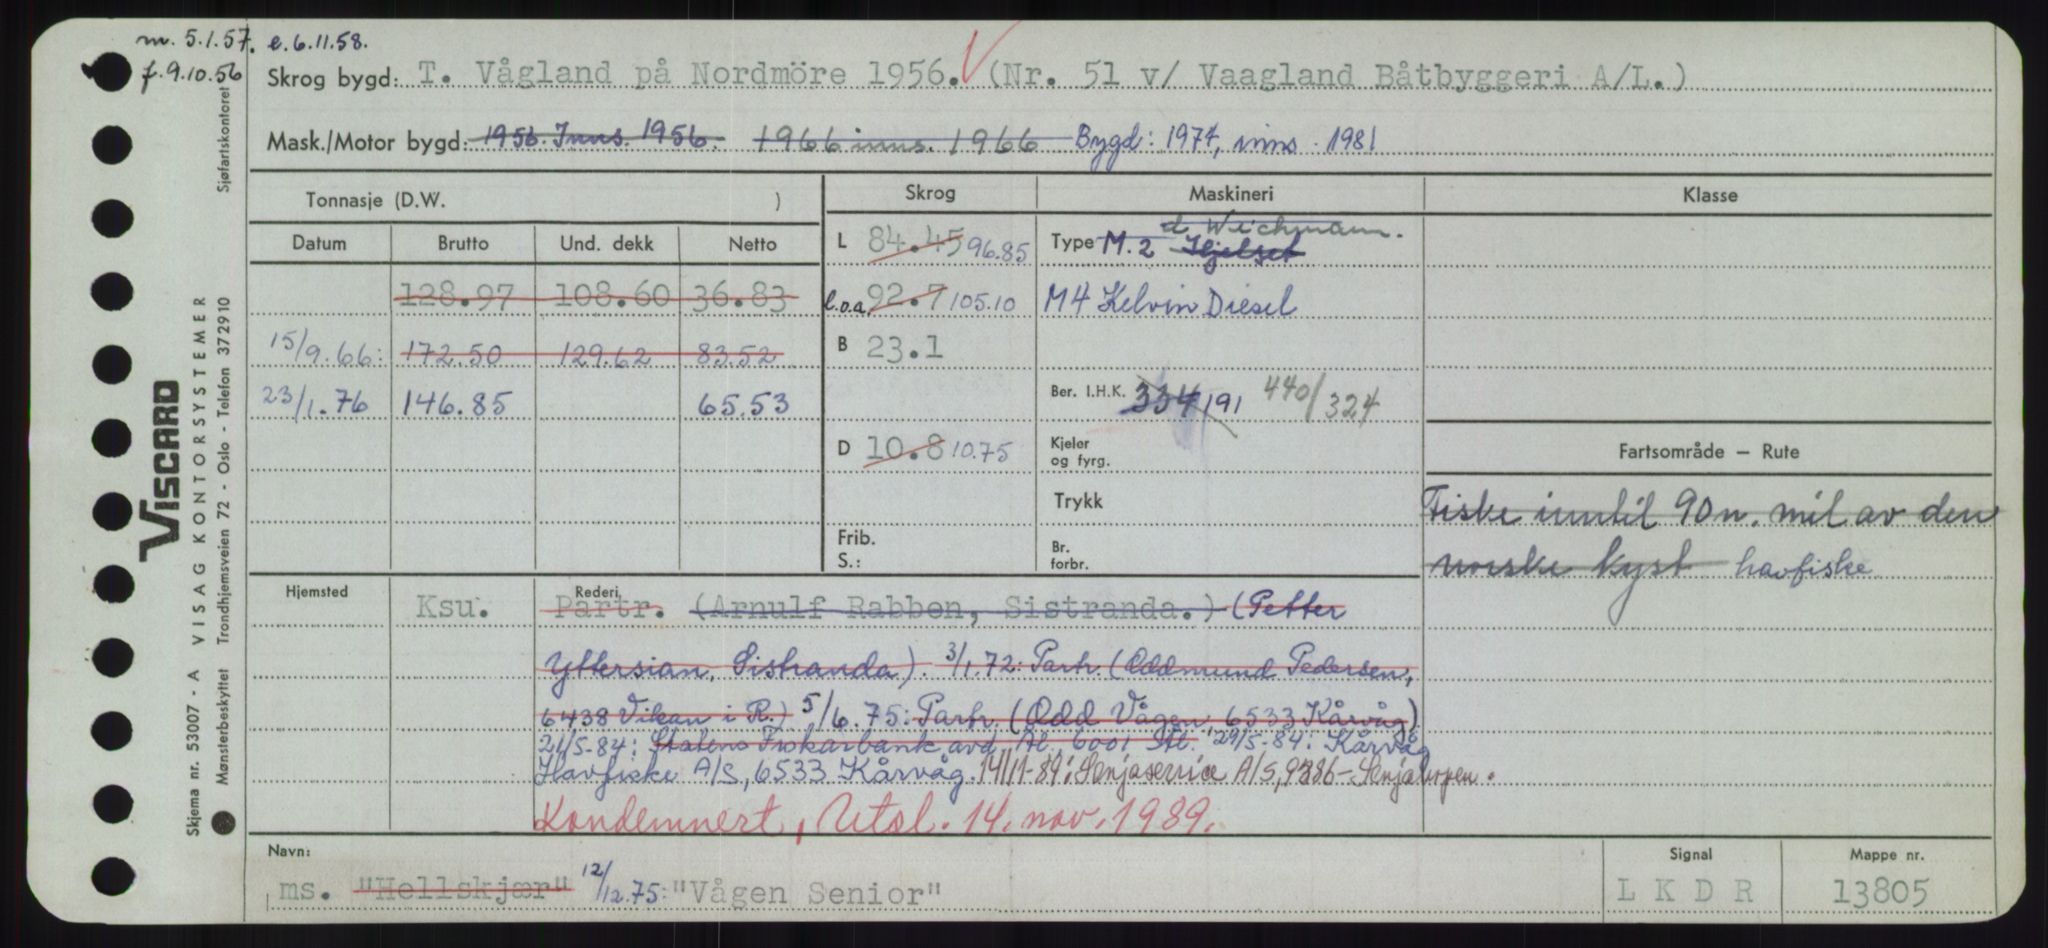 m. 5.1.57. e. 6.11.58.
f. 9.10.56
Skrog bygd: T. Vågland på Nordmöre 1956. (Nr. 51 v/ Vaagland Båtbyggeri A/L.)
Mask./Motor bygd: 1956. Inns. 1956. 1966 inns. 1966 Bygd: 1974, inns. 1981
Tonnasje (D.W. ) Skrog Maskineri Klasse
Datum Brutto Und. dekk Netto L 84.45 96.85 Type M.2 Hjelset
d Wichmann.
128.97 108.60 36.83 l.o.a. 92.7 105.10 M4 Kelvin Diesel
15/9.66: 172.50 129.62 83.52 B 23.1
23/1.76 146.85 65.53 Ber. I.H.K. 334 191 440/324
D 10.8 10.75 Kjeler og fyrg. Fartsområde – Rute
Trykk Fiske inntil 90 n. mil av den
Frib. S.: Br. forbr. norske kyst havfiske
Hjemsted Rederi
Ksu. Partr. (Arnulf Rabben, Sistranda.) (Petter
Yttersian, Sistranda). 3/1.72: Partr. (Oddmund Pedersen,
6438 Vikan i R.) 5/6.75: Partr. (Odd Vågen, 6533 Kårvåg)
21/5-84: Statens Fiskarbank avd. Ål., 6001 Ål. 29/5-84: Kårvåg
Havfiske A/S, 6533 Kårvåg. 14/11-89: Senjaservice A/S, 9386 – Senjahopen.
Kondemnert, Utsl. 14. nov. 1989.
Navn: Signal Mappe nr.
ms. "Hellskjær" 12/12.75: "Vågen Senior" LKDR 13805
Sjøfartskontoret
VISCARD
Skjema nr. 53007 - A VISAG KONTORSYSTEMER
Mønsterbeskyttet Trondhjemsveien 72 - Oslo - Telefon 372910